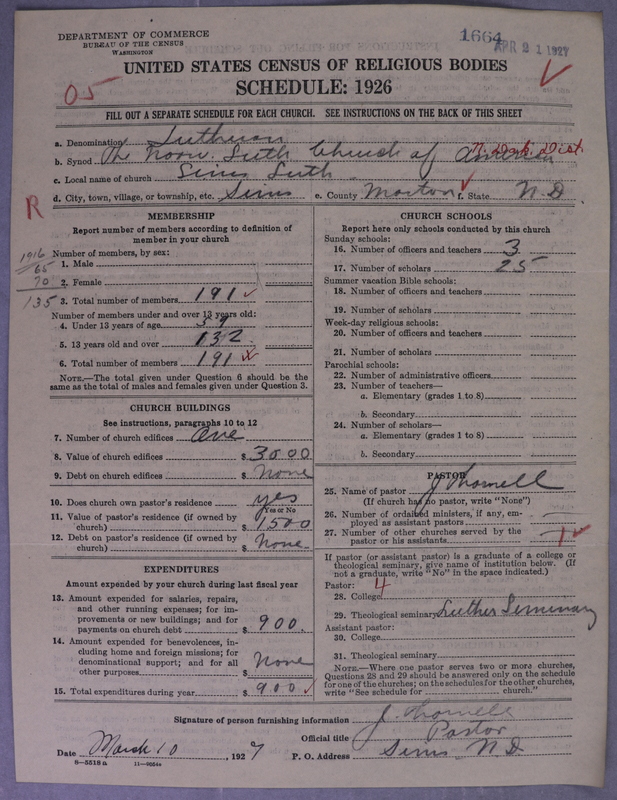 DEPARTMENT OF COMMERCE
BUREAU OF THE CENSUS
WASHINGTON
1664
APR 21 1927
UNITED STATES CENSUS OF RELIGIOUS BODIES
SCHEDULE: 1926
05
FILL OUT A SEPARATE SCHEDULE FOR EACH CHURCH. SEE INSTRUCTIONS ON THE BACK OF THIS SHEET
a. Denomination Lutheran
b. Synod The Norw. Luth Church of America N. Dak. Dist.
c. Local name of church Sims Luth
d. City, town, village, or township, etc. Sims e. County Morton f. State N. D
R
MEMBERSHIP
Report number of members according to definition of
member in your church
1916
65
70
135
Number of members, by sex:
1. Male
2. Female
3. Total number of members 191
Number of members under and over 13 years old:
4. Under 13 years of age 59
5. 13 years old and over 132
6. Total number of members 191
NOTE.—The total given under Question 6 should be the
same as the total of males and females given under Question 3.
CHURCH BUILDINGS
See instructions, paragraphs 10 to 12
7. Number of church edifices One
8. Value of church edifices $ 3000
9. Debt on church edifices $ None
10. Does church own pastor's residence yes
Yes or No
11. Value of pastor's residence (if owned by
church) $ 1500
12. Debt on pastor's residence (if owned by
church) $ None
EXPENDITURES
Amount expended by your church during last fiscal year
13. Amount expended for salaries, repairs,
and other running expenses; for im-
provements or new buildings; and for
payments on church debt $ 900.
14. Amount expended for benevolences, in-
cluding home and foreign missions; for
denominational support; and for all
other purposes $ None
15. Total expenditures during year $ 900
CHURCH SCHOOLS
Report here only schools conducted by this church
Sunday schools:
16. Number of officers and teachers 3
17. Number of scholars 25
Summer vacation Bible schools:
18. Number of officers and teachers
19. Number of scholars
Week-day religious schools:
20. Number of officers and teachers
21. Number of scholars
Parochial schools:
22. Number of administrative officers
23. Number of teachers—
a. Elementary (grades 1 to 8)
b. Secondary
24. Number of scholars—
a. Elementary (grades 1 to 8)
b. Secondary
PASTOR
25. Name of pastor J Thorvell
(If church has no pastor, write "None")
26. Number of ordained ministers, if any, em-
ployed as assistant pastors
27. Number of other churches served by the
pastor or his assistants 1
If pastor (or assistant pastor) is a graduate of a college or
theological seminary, give name of institution below. (If
not a graduate, write "No" in the space indicated.)
Pastor: 4
28. College
29. Theological seminary Luther Seminary
Assistant pastor:
30. College
31. Theological seminary
NOTE.—Where one pastor serves two or more churches,
Questions 28 and 29 should be answered only on the schedule
for one of the churches; on the schedules for the other churches,
write "See schedule for church."
Signature of person furnishing information J Thorvell
Official title Pastor
Date March 10, 1927 P. O. Address Sims N. D.
8—5518 a 11—9064